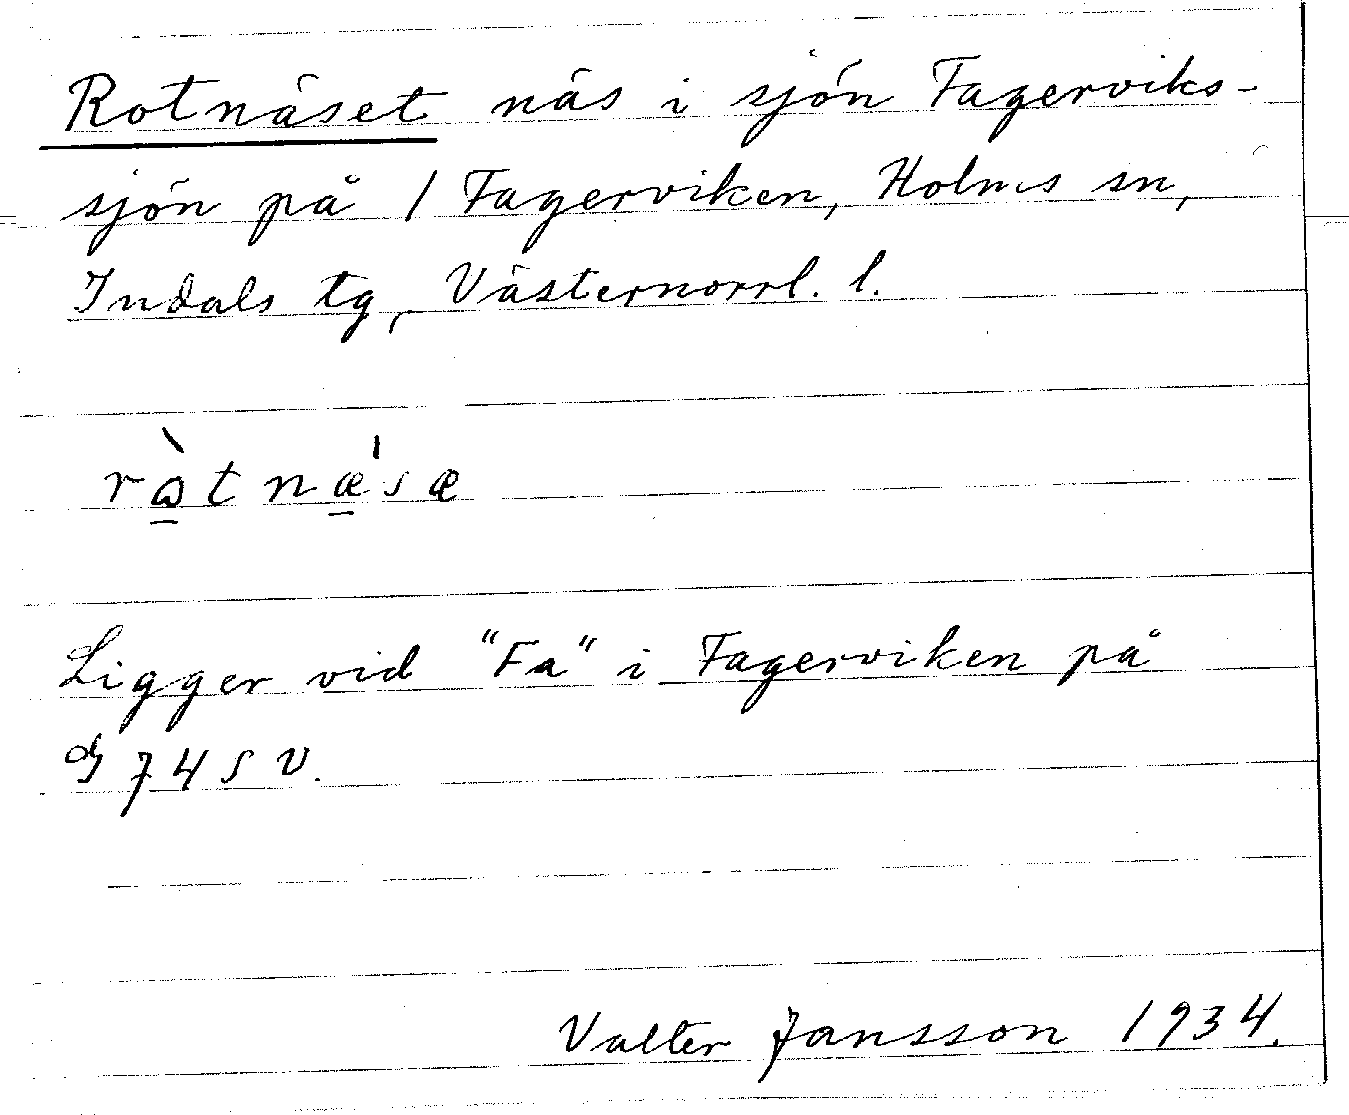 Rotnäset näs i sjön Fagerviks-
sjön på 1 Fagerviken, Holms sn,
Indals tg, Västernorrl. l.
ràtnæ'sæ
Ligger vid "Fa" i Fagerviken på
74 SV.
Valter Jansson 1934.